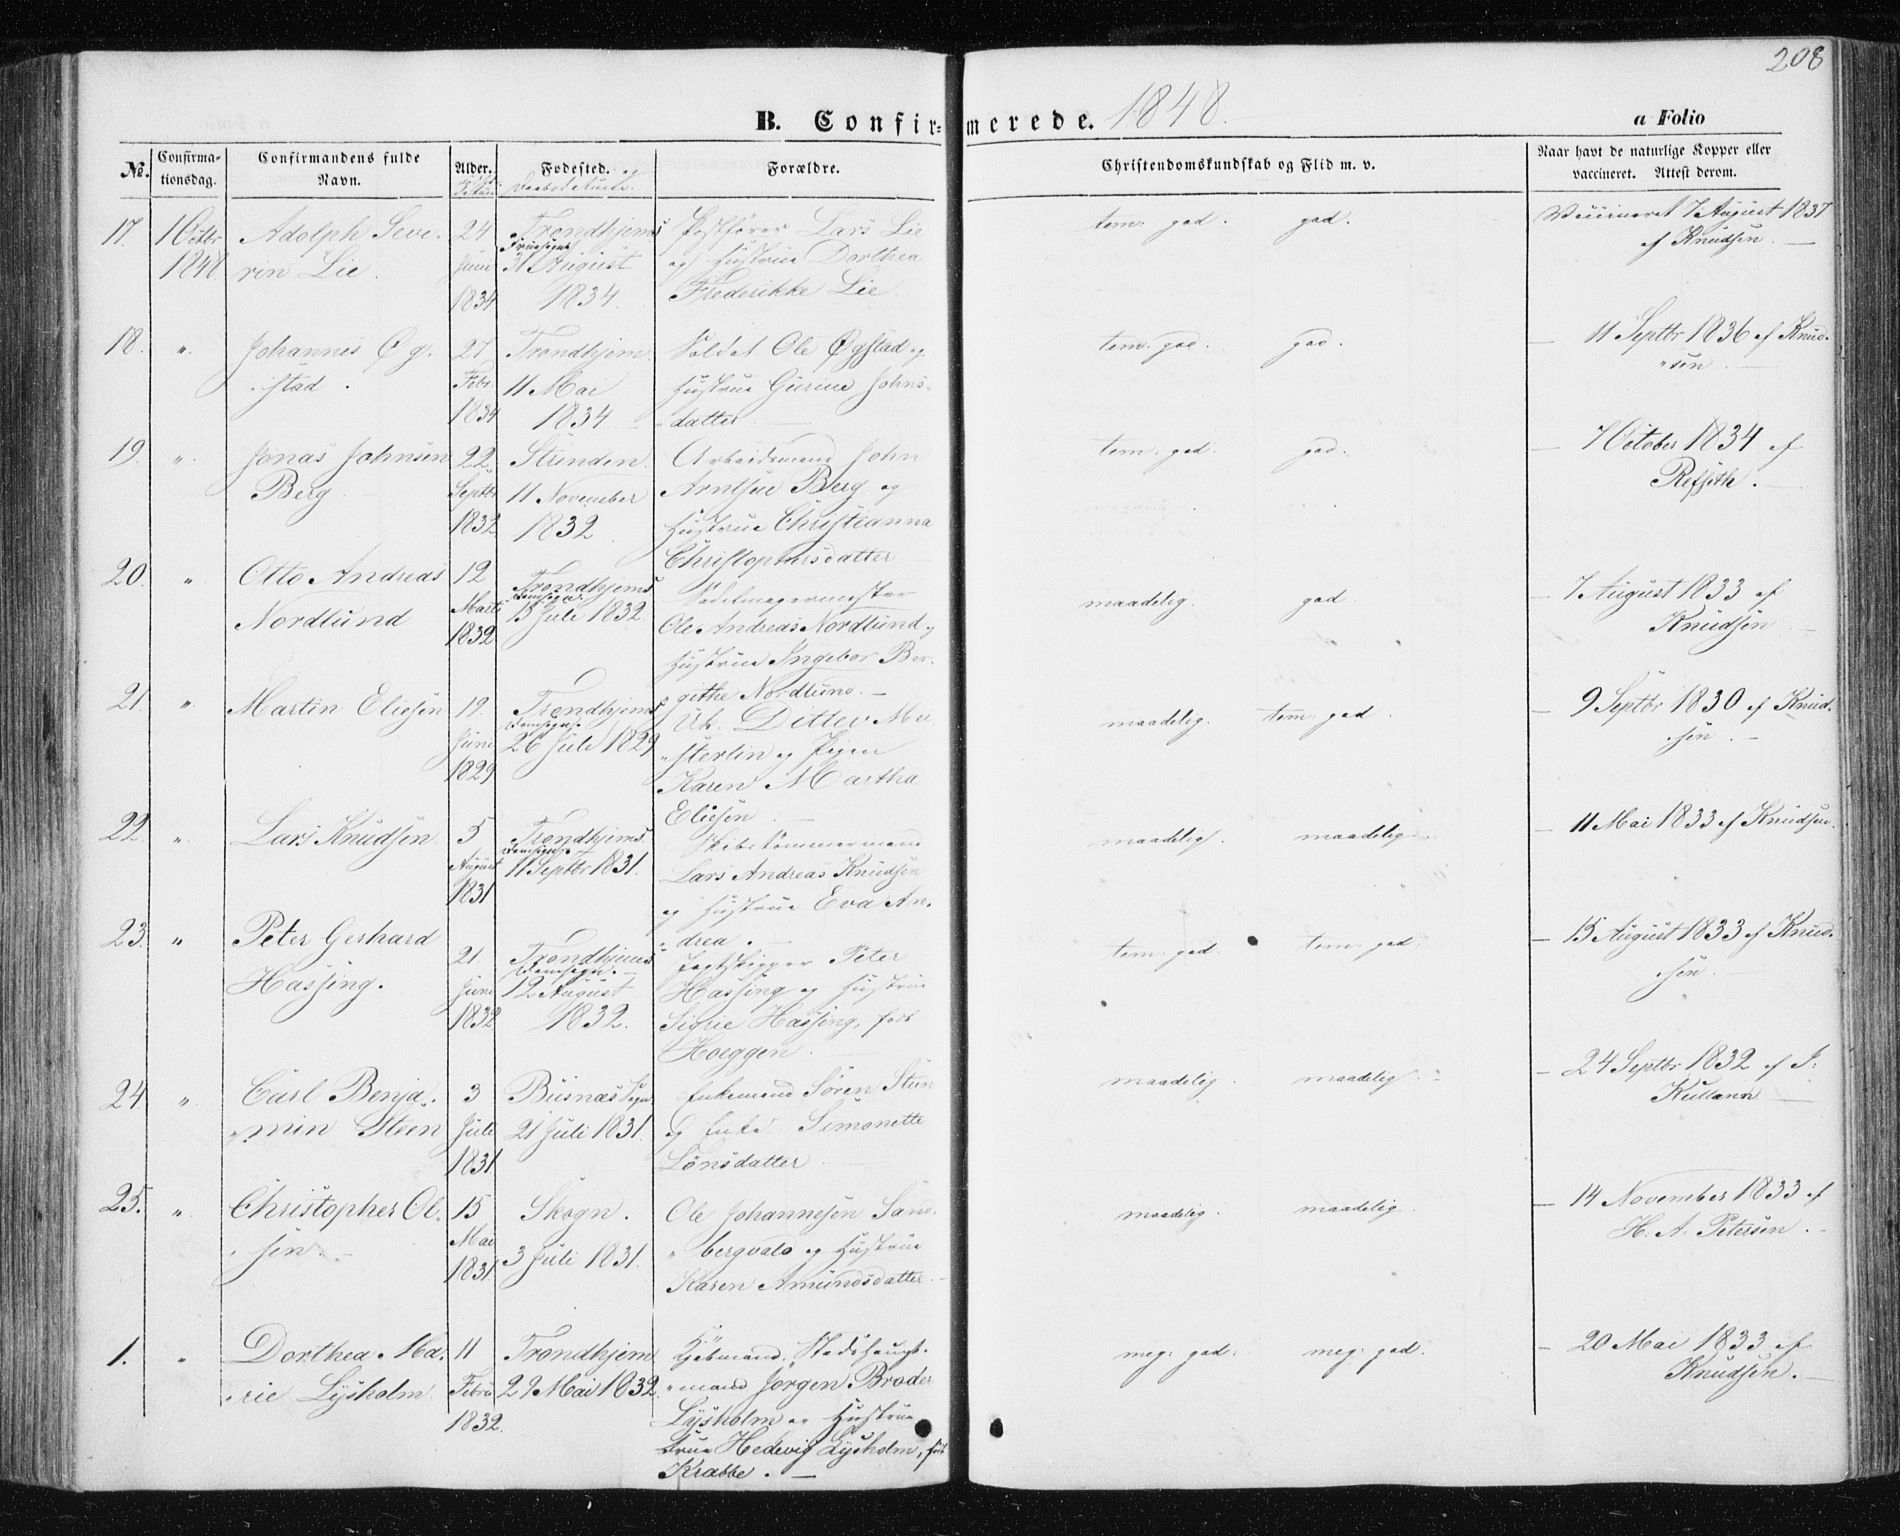 208
B. Confirmerede. 1848
a Folio
No.
Confirmationsdag.
Confirmandens fulde Navn.
Alder.
Fødested. og Daabsdatum.
Forældre.
Christendomskundskab og Flid m. v.
Naar havt de naturlige Kopper eller vaccineret. Attest derom.
17. 1 Octbr 1848
Adolph Seve-
rin Lie.
24 Juni 1834
Trondhjems
Fruesogn
31 August
1834.
Lars Lie
og Hustrue Dorthea
Frederikke Lie
tem: god. god.
Vaccineret 7 August 1837
af Knudsen.
18. "
Johannes Øg-
stad.
27 Febr 1834
Trondhjem
11 Mai
1834
Soldat Ole Øgstad og
Hustrue Gurine Johns-
datter
tem: god. god.
— 11 Septbr 1836 af Knud-
sen.
19. "
Jonas Johnsen
Berg
22 Septbr 1832
Strinden.
11 November
1832
Arbeidsmand John
Arntsen Berg og
Hustrue Christianna
Christophersdatter
tem: god. god.
— 7 October 1834 af
20. "
Otto Andreas
Nordlund
12 Marts 1832
Trondhjems
Domsogn.
15 Juli 1832.
Sadelmagermester
Ole Andreas Nordlund og
Hustrue Ingebor Ber-
githe Nordlund. —
maadelig. god.
— 7 August 1833 af
Knudsen
21. "
Martin Eliesen
19. Juni 1829
Trondhjems
Domsogn.
26 Juli 1829
Ditlev Me-
sterlin og Pigen
Karen Martha
Eliesen
maadelig. tem: god.
— 9 Septbr 1830 af Knud-
sen.
22. "
Lars Knudsen.
5 August 1831
Trondhjems
Domsogn.
11 Septbr 1831.
Skibstømmermand
Lars Andreas Knudsen
og Hustrue Eva An-
drea.
maadelig. maadelig.
— 11 Mai 1833 af Knudsen.
23. "
Peter Gerhard
Hassing.
21. Juni 1832
Trondhjems
Domsogn.
12 August
1832.
Jagtskipper Peter
Hassing og Hustrue
Hassing, født
Hoeggen
tem: god. tem: god.
— 15 August 1833 af Knud-
sen.
24. "
Carl Benja-
min Steen
3 Juli 1831
Busnæs Sogn
21 Juli 1831.
Enkemand Søren Steen
og Enke Simonette
Lönsdatter
maadelig. maadelig.
— 24 Septbr 1832 af J.
Kullann
25. "
Christopher Ol-
sen.
15 Mai 1831
Skogn.
3 Juli 1831.
Ole Johannesen Sand-
bergvald og Hustrue
Karen Amundsdatter.
maadelig. maadelig.
— 14 November 1833 af
H. A. Petersen.
1. "
Dorthea Ma-
rie Lysholm.
11 Febru 1832.
Trondhjem
29 Mai 1832.
Kjøbmand, Stadshaupt-
mand Jörgen Broder
Lysholm og Hustrue
true Hedevig Lysholm, født
Krabbe. —
meg: god: meg: god.
— 20 Mai 1833 af
Knudsen.